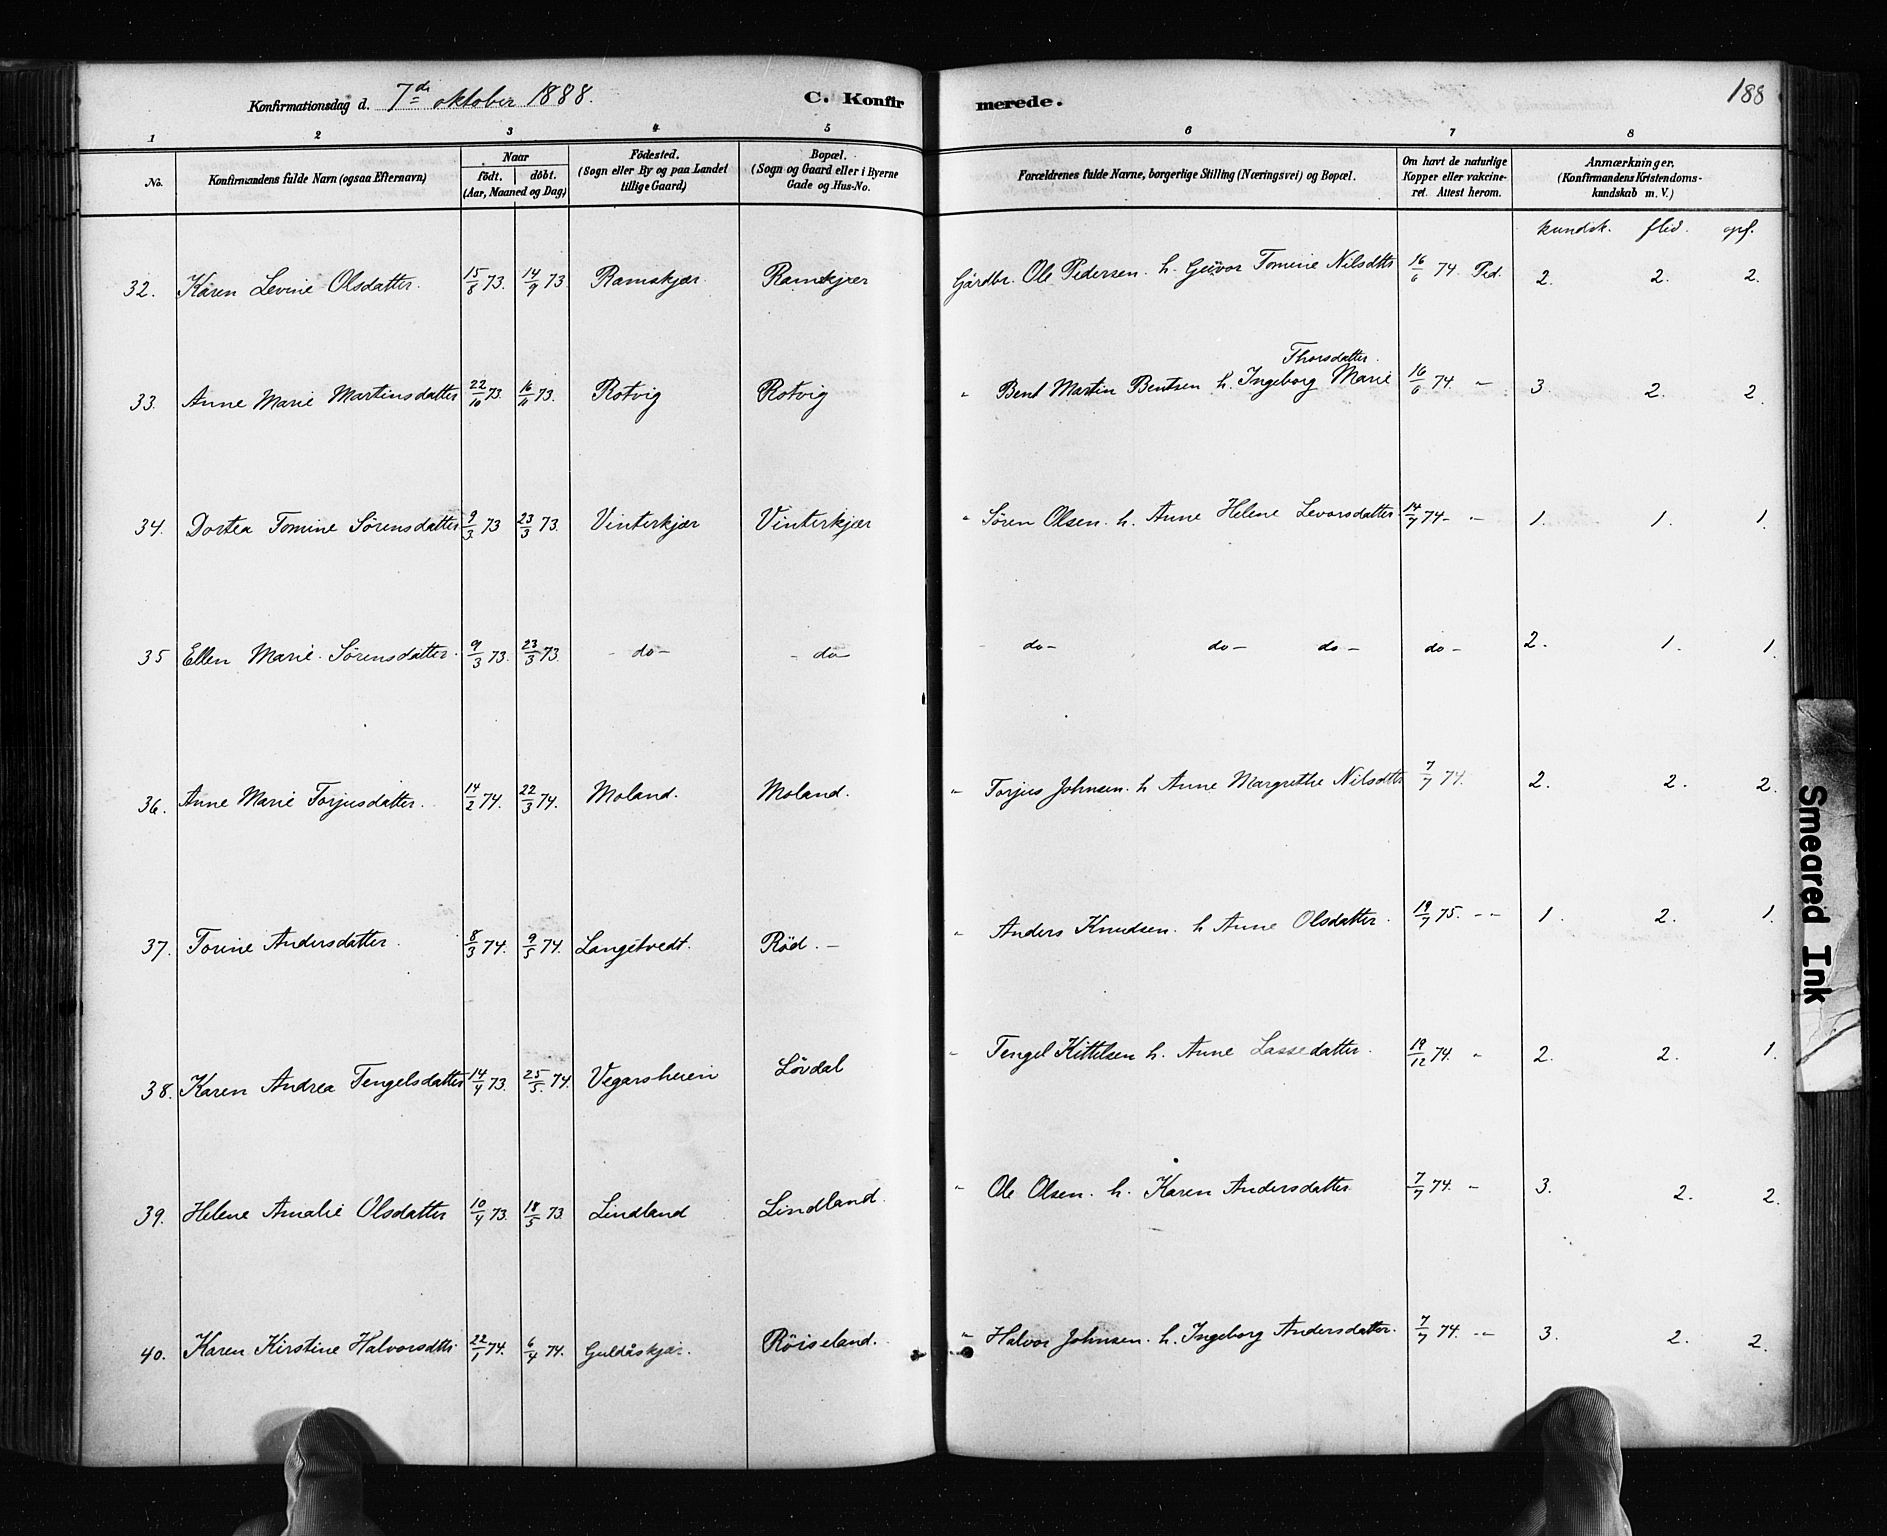 Konfirmationsdag d. 7de oktober 1888. C. Konfir merede. 188
1 2 3 4 5 6 7 8
No. Konfirmandens fulde Navn (ogsaa Efternavn) Naar födt. döbt. (Aar, Maaned og Dag) Födested. (Sogn eller By og paa Landet tillige Gaard) Bopæl. (Sogn og Gaard eller i Byerne Gade og Hus-No. Forældrenes fulde Navne, borgerlige Stilling (Næringsvei) og Bopæl. Om havt de naturlige Kopper eller vakcineret. Attest herom. Anmærkninger. (Konfirmandens Kristendomskundskab m. V.)
kundsk. flid. opf.
32. Karen Levine Olsdatter. 15/8 73. 14/9 73 Ramskjær. Ramskjær Gårdbr. Ole Pedersen. h. Guvor Tomine Nilsdtr 16/6 74. Ped. 2. 2. 2.
Thorsdatter.
33. Anne Marie Martinsdatter 22/10 73. 16/11 73. Rotvig Rotvig " Bent Martin Bentsen h. Ingeborg Marie 16/6 74. " 3. 2. 2
34. Dortea Tomine Sørensdatter 9/3 73 23/3 73. Vinterkjær Vinterkjær " Søren Olsen. h. Anne Helene Levorsdatter 14/7 74 - " 1. 1. 1.
35 Ellen Marie Sørensdatter. 9/3 73. 23/3 73. - do - - do - do - do - do - do - 2. 1. 1.
36. Anne Marie Torjusdatter. 14/2 74. 22/3 74. Moland. Moland. " Torjus Johnsen. h Anne Margrethe Nilsdtr 7/7 74. 2. 2. 2.
37. Torine Andersdatter. 8/3 74. 9/5 74. Langetvedt. Rød. - " Anders Knudsen. h Anne Olsdatter. 19/7 75. - " 1. 2. 1.
38. Karen Andrea Tengelsdatter 14/4 73. 25/5. 74. Vegarsheien Lövdal " Tengel Kittelsen h. Anne Lassedatter. 19/12 74. " 2. 2. 1.
39. Helene Amalie Olsdatter 10/4 73. 18/5 73 Lindland Lindland. " Ole Olsen. h. Karen Andersdatter 7/7 74. " 3. 2. 2.
40. Karen Kirstine Halvorsdtr. 22/1 74. 6/4 74. Guldåskjær. Röiseland. " Halvor Johnsen. h. Ingeborg Andersdatter. 7/7 74. - " 3. 2. 2.
Smeared Ink